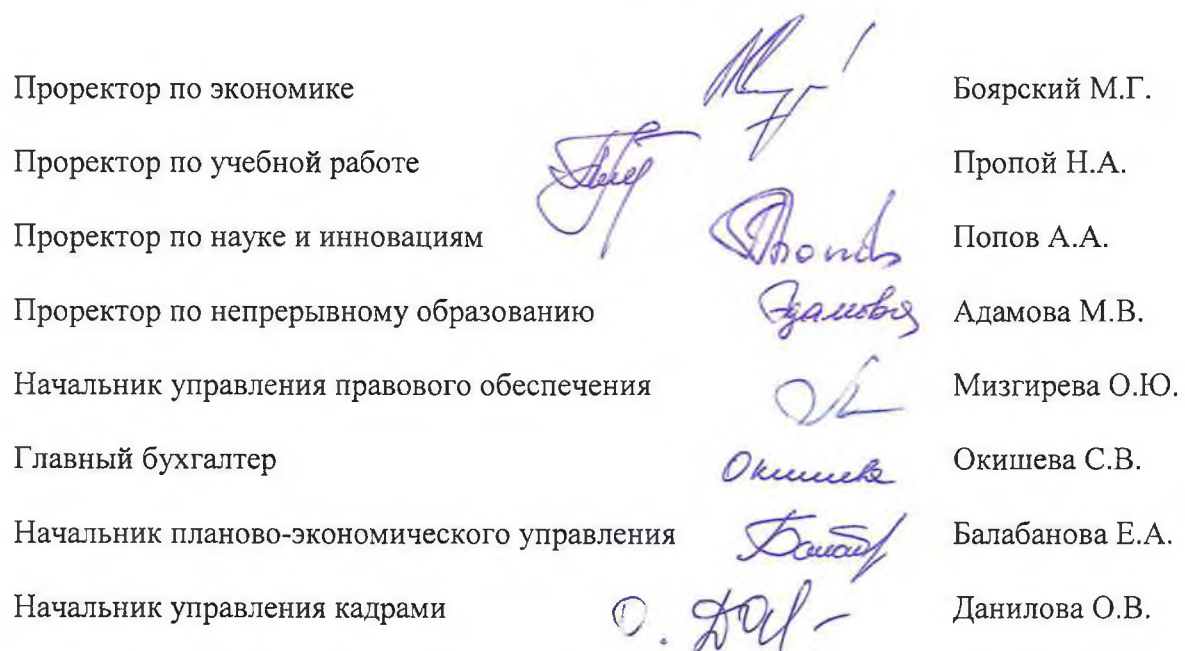 Проректор по экономике Боярский М.Г.
Проректор по учебной работе Пропой Н.А.
Проректор по науке и инновациям Попов А.А.
Проректор по непрерывному образованию Адамова М.В.
Начальник управления правового обеспечения Мизгирева О.Ю.
Главный бухгалтер Окишева Окишева С.В.
Начальник планово-экономического управления Балабанова Е.А.
Начальник управления кадрами Данилова О.В.